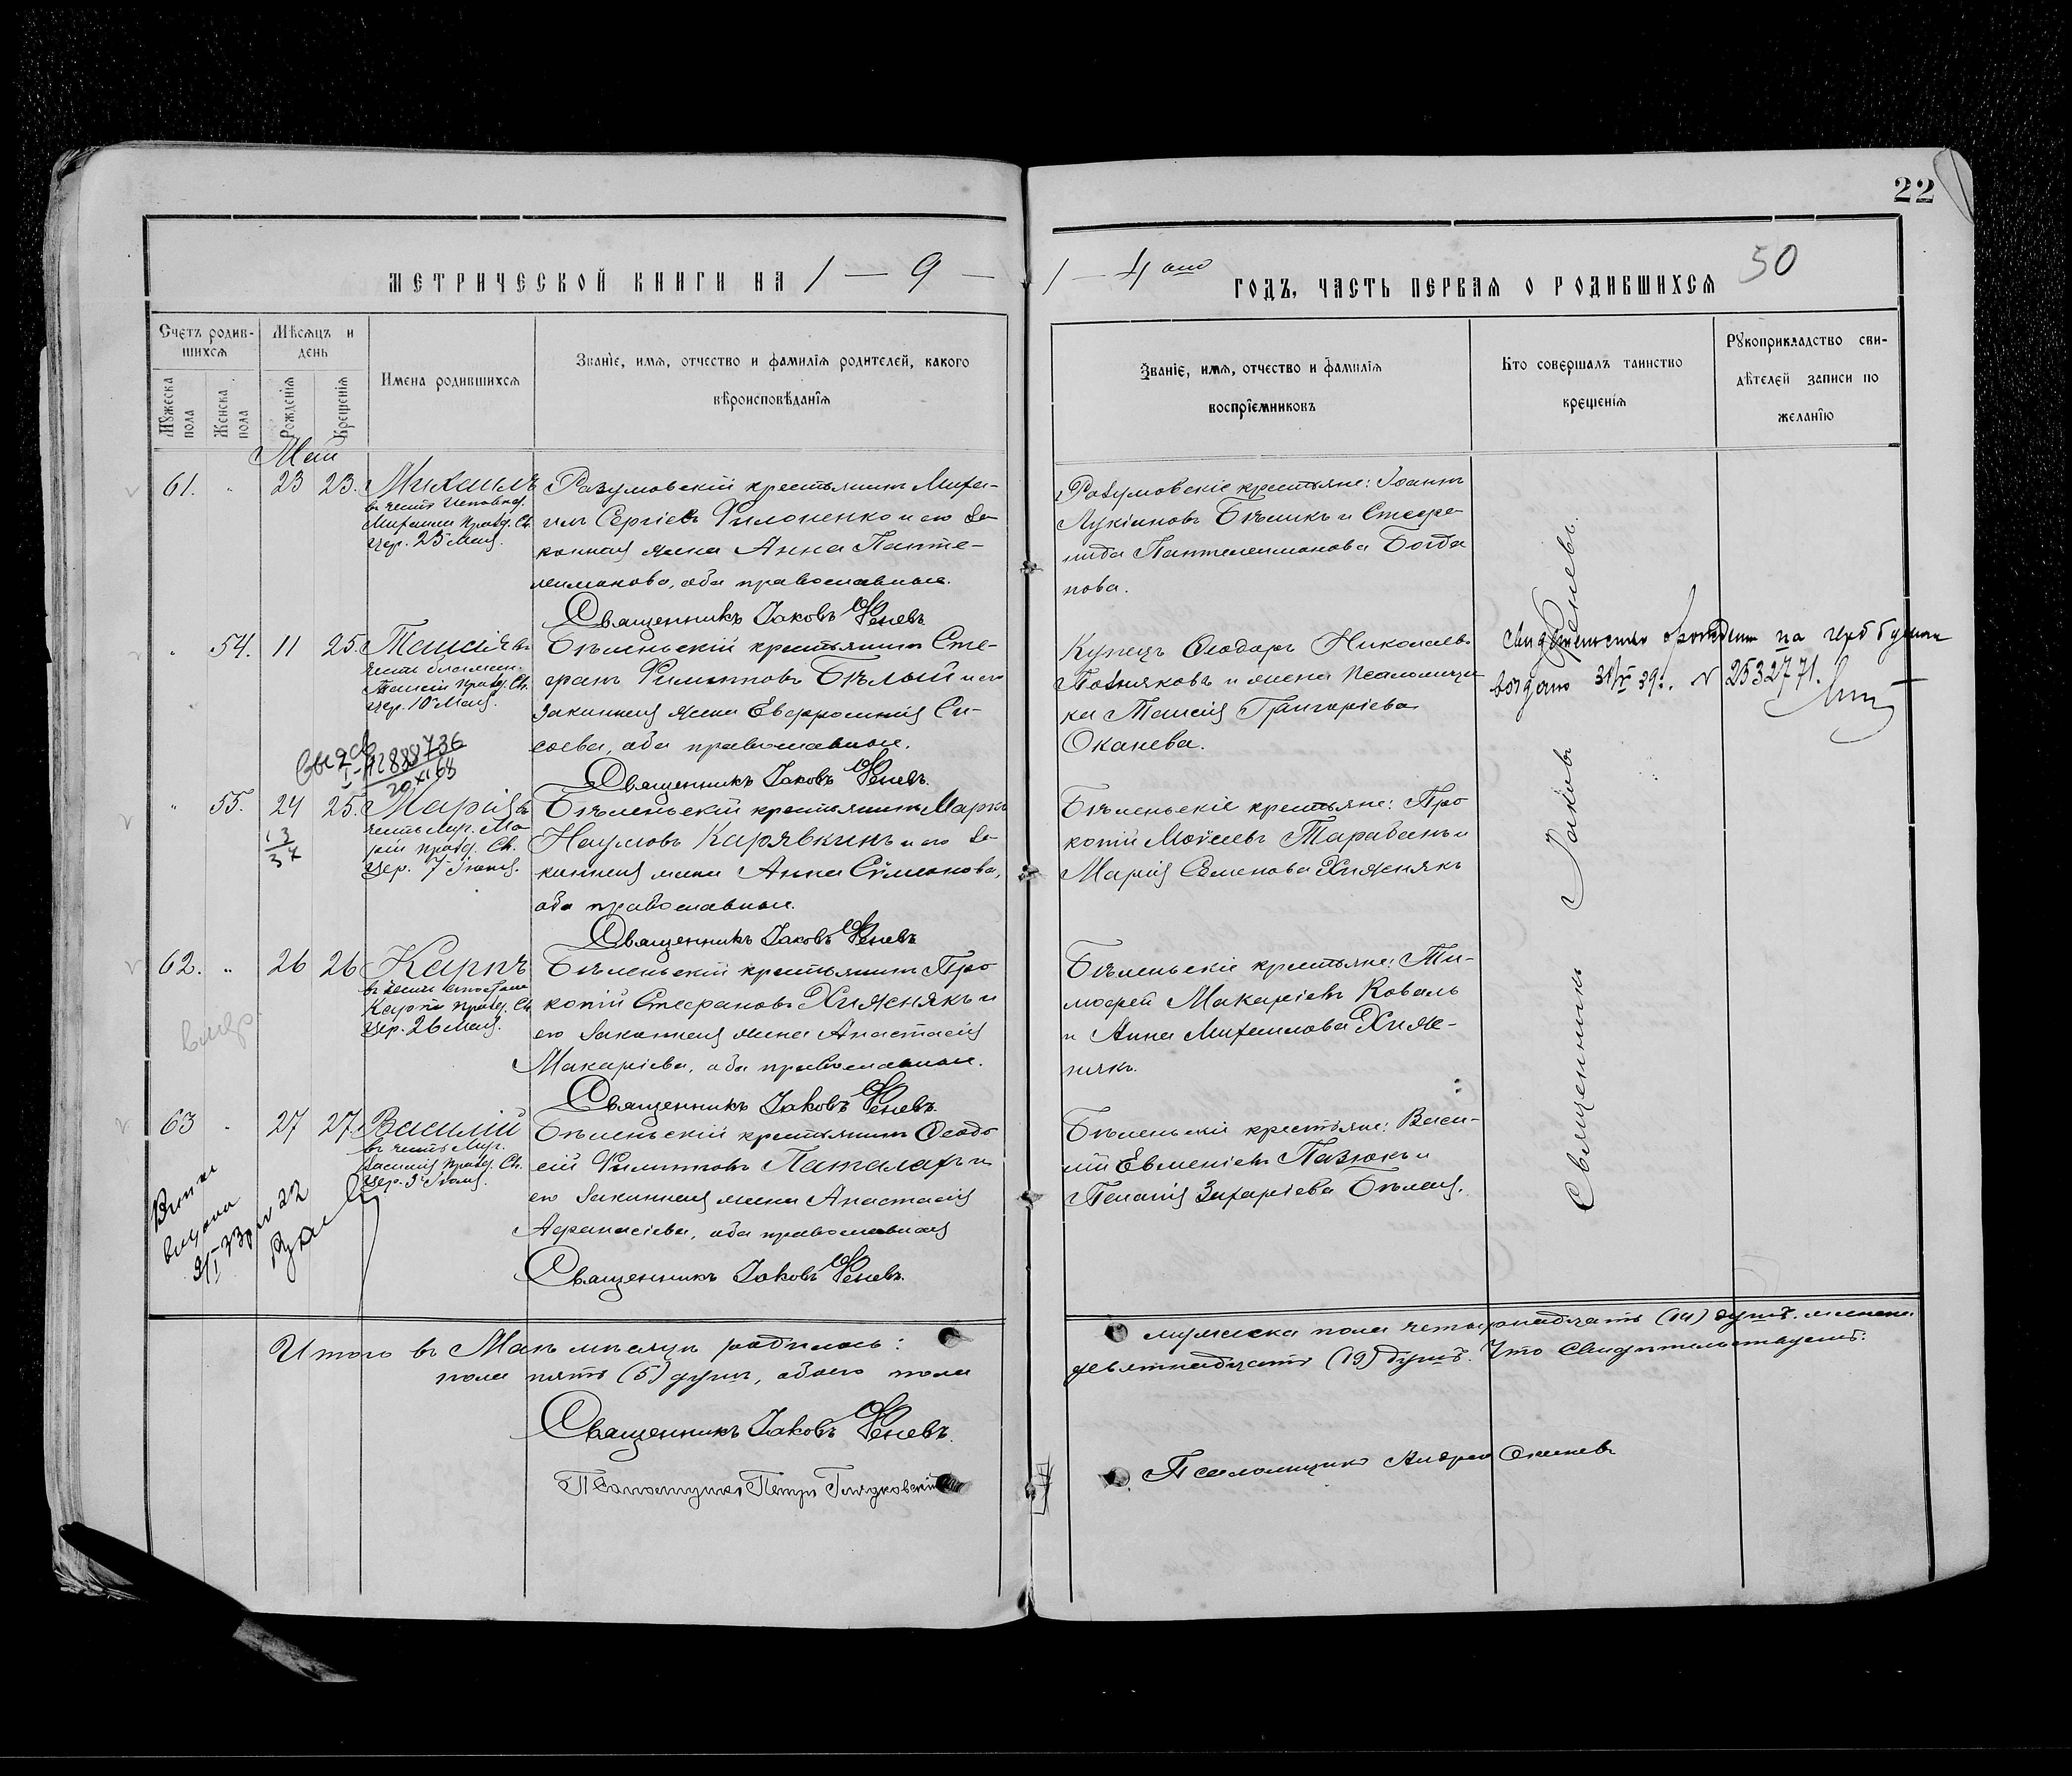 22
50
МЕТРИЧЕСКОЙ КНИГИ НА 1 — 9 —
1 — 4 ый ГОДЪ, ЧАСТЬ ПЕРВАЯ О РОДИВШИХСЯ
Счетъ родив-
шихся
Мѣсяцъ и
день
Мужеска
пола
Женска
пола
Рожденія
Крещенія
Имена родившихся
Званіе, имя, отчество и фамилія родителей, какого
вѣроисповѣданія
Званіе, имя, отчество и фамилія
воспріемниковъ
Кто совершалъ таинство
крещенія
Рукоприкладство сви-
дѣтелей записи по
желанію
Май
61. " 23 23. Михаилъ
въ честь Исповѣд.
Михаила празд. Св.
Цер. 23 Мая.
Разумовскій крестьянинъ Миха-
илъ Сергіевъ Филоненко и его за-
конная жена Анна Панте-
леимонова, оба православные.
Священникъ Іаковъ Феневъ
Разумовскіе крестьяне: Іоаннъ
Лукіановъ Бѣликъ и Стефа-
нида Пантелеимонова Богда
нова.
" 54. 11 25. Таисія въ
честь блажен.
Таисіи празд. Св.
Цер. 10 Мая.
Бѣленьскій крестьянинъ Сте-
фанъ Филипповъ Бѣлый и его
законная жена Евфросинія Си-
соева, оба православные.
Священникъ Іаковъ Феневъ.
Купецъ Ѳеодоръ Николаевъ
Позняковъ и жена псаломщи
ка Таисія Григоріева
Оканева.
Свидѣтельство о рождении на герб бумаге
выдано 31/IV 39г. N 2532771.
Свид
I-Я2888736
20.XI 68
" 55. 24 25. Марія въ
честь Муч. Ма
ріи празд. Св.
Цер. 7 Іюня.
13
37
Бѣленьскій крестьянинъ Маркъ
Наумовъ Карявкинъ и его за-
конная жена Анна Сѵмеонова,
оба православные.
Священникъ Іаковъ Феневъ
Бѣленьскіе крестьяне: Про
копій Моѵсеевъ Тарабанъ и
Марія Семенова Хижнякъ
62. " 26 26 Карпъ
въ честь Апостола
Карпа празд. Св.
Цер. 26 Мая.
умер.
Бѣленьскій крестьянинъ Про
копій Стефановъ Хижнякъ и
его законная жена Анастасія
Макаріева, оба православные.
Священникъ Іаковъ Феневъ.
Бѣленьскіе крестьяне: Ти-
мофей Макаріевъ Коваль
и Анна Михаилова Хиж-
някъ.
63 " 27 27. Василій
въ честь Муч.
Василія празд. Св.
Цер. 3 Іюня.
выдана
Бѣленьскій крестьянинъ Ѳеодо
сій Филипповъ Паталахъ и
его законная жена Анастасія
Афанасіева, оба православная
Священникъ Іаковъ Феневъ.
Бѣленьскіе крестьяне: Васи-
лій Евменіевъ Пазюкъ и
Пелагія Захаріева Бѣлая.
Священникъ Іаковъ Феневъ.
Итого въ Маѣ мѣсяцѣ родилось: мужеска пола четырнадцать (14) душъ. женска
пола пять (5) душъ, обоего пола девятнадцать (19) душъ. Что свидѣтельствуемъ:
Священникъ Іаковъ Феневъ.
Псаломщикъ Петръ
Псаломщикъ Андрей Оканевъ